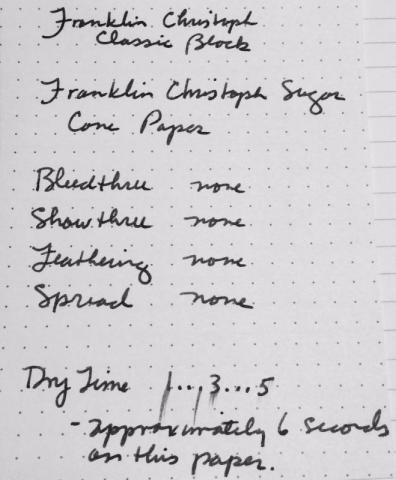 Franklin Christoph
Classic Block
Franklin Christoph Sugar
Cone Paper
Bleedthru none
Showthru none
Feathering none
Spread none
Dry Time 1...3...5
- approximately 6 seconds
on this paper.